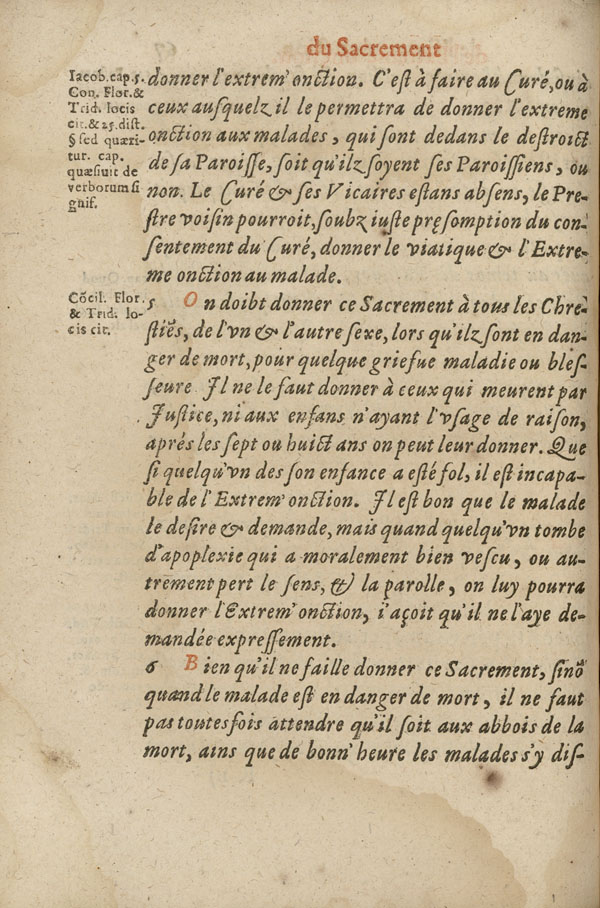 du Sacrement
Iacob.cap.5.
Con. Flor.&
Trid. locis
cit.& 25.dist.
§ sed quæri-
tur. cap.
quæsiuit de
verborum si
gnif.
donner l'extrem' onction. C'est à faire au Curé, ou à
ceux ausquelz il le permettra de donner l'extreme
onction aux malades, qui sont dedans le destroict
de sa Paroisse, soit qu'ilz soyent ses Paroissiens, ou
non. Le Curé & ses Vicaires estans absens, le Pre-
stre voisin pourroit, soubz iuste pręsomption du con-
sentement du Curé, donner le viatique & l'Extre-
me onction au malade.
Cōcil. Flor.
& Trid. lo-
cis cit.
5 On doibt donner ce Sacrement à tous les Chre-
stiēs, de l'vn & l'autre sexe, lors qu'ilz sont en dan-
ger de mort, pour quelque griefue maladie ou bles-
seure Il ne le faut donner à ceux qui meurent par
Justice, ni aux enfans n'ayant l'vsage de raison,
aprés les sept ou huict ans on peut leur donner. Que
si quelqu'vn des son enfance a esté fol, il est incapa-
ble de l'Extrem' onction. Il est bon que le malade
le desire & demande, mais quand quelqu'vn tombe
d'apoplexie qui a moralement bien vescu, ou au-
trement pert le sens, & la parolle, on luy pourra
donner l'Extrem' onction, i'açoit qu'il ne l'aye de-
mandée expressement.
6 Bien qu'il ne faille donner ce Sacrement, sinō
quand le malade est en danger de mort, il ne faut
pas toutesfois attendre qu'il soit aux abbois de la
mort, ains que de bonn' heure les malades s'y dis-